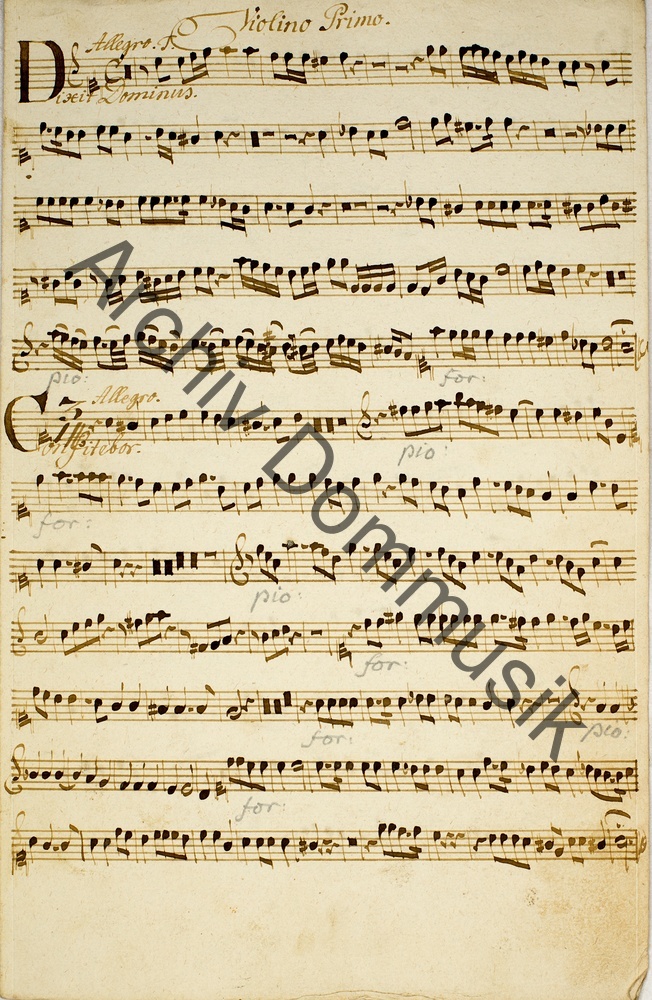 Violino Primo.
Allegro.
Dixit Dominus.
pio:
for:
Allegro.
Confitebor.
pio:
for:
pio:
for:
for:
pio:
for:
Archiv Dommusik